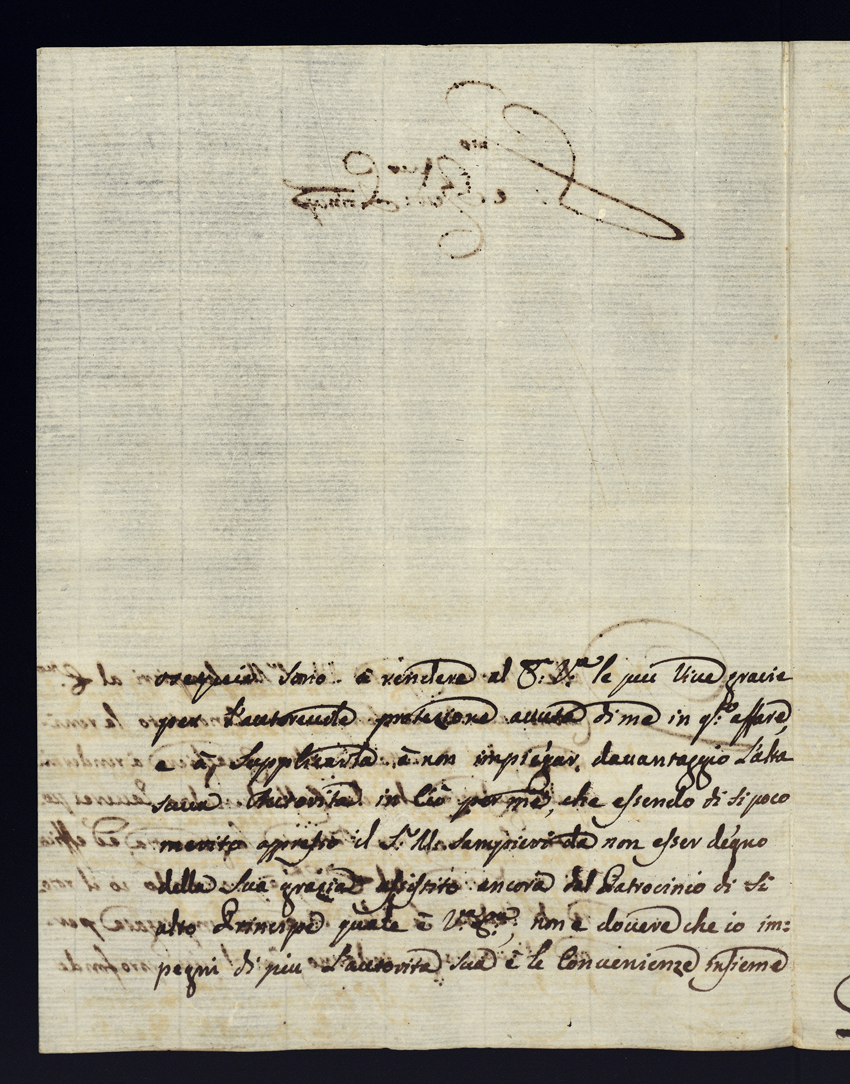 sono à rendere al le più Viue gracie
per L'autoreuole protezione auuta di me in q.to affare
e à, Supplicarla à non impiegar davantaggio L'alta
Autorità in Ciò per me, che essendo di si poco
merito appresso il S.r M. Sampieri da non esser degno
della Sua gracia assistito ancora dal Patrocinio di Si
alto Principe quale è V.ra Em.za, non è douere che io im=
pegni di piu L'autorità Sua è le Conuenienze insieme